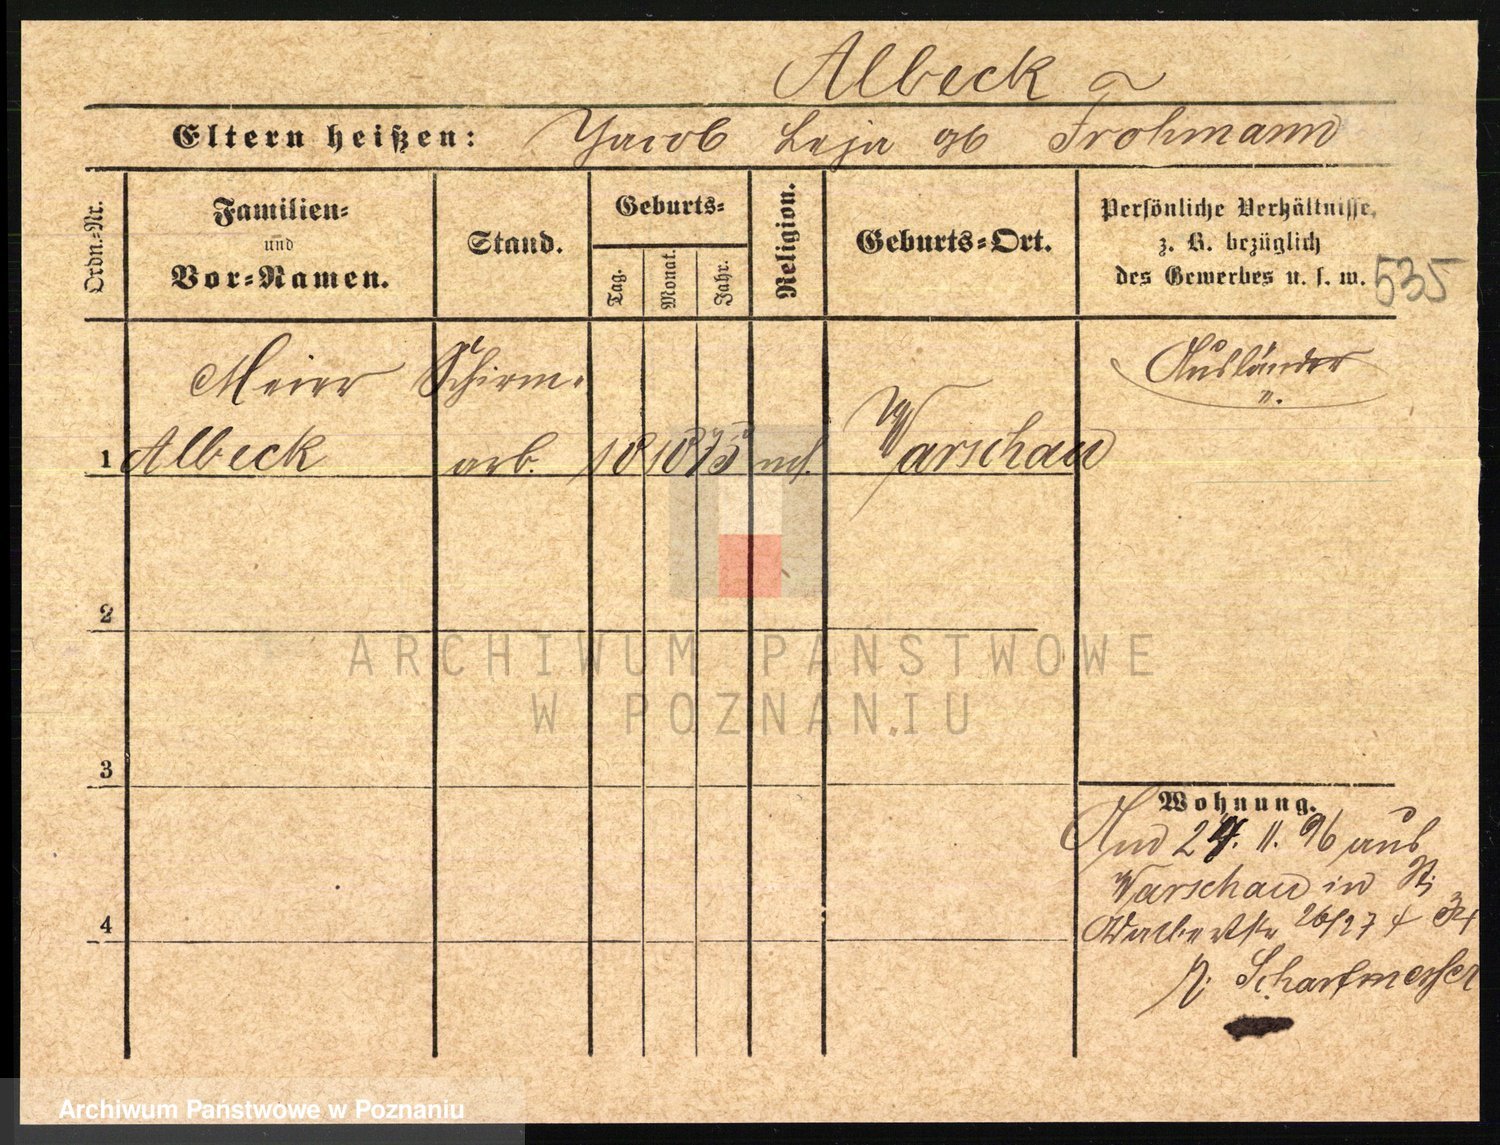 Albeck
Eltern heißen: Jacob Leja gb Frohmann
Ordn.-Nr.
Familien-
und
Vor-Namen.
Stand.
Geburts-
Tag.
Monat.
Jahr.
Religion.
Geburts-Ort.
Persönliche Verhältnisse,
z. B. bezüglich
des Gewerbes u. s. w.
535
Meier Schirm-
Ausländer
1 Albeck arb. 1875 Warschau
2
3
4
Wohnung.
And 24. 11. 96 aus
Warschau in
Wallbertstr 26/27
Scharfmesser
ARCHIWUM PAŃSTWOWE
W POZNANIU
Archiwum Państwowe w Poznaniu